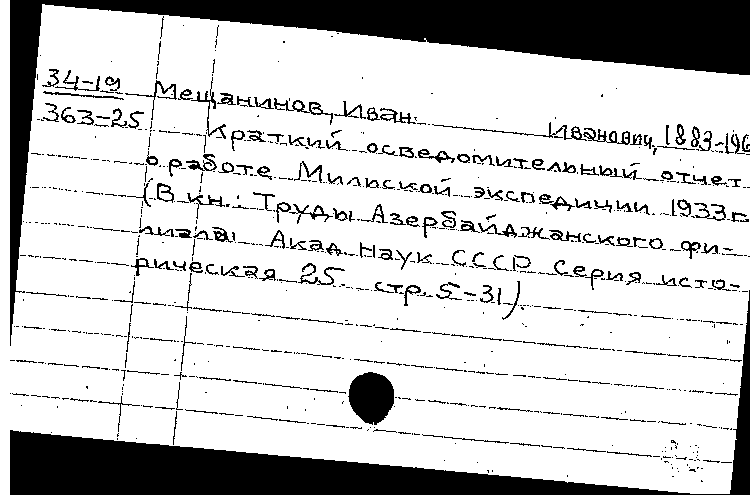 34-19 Мещанинов, Иван Иванович, 1883-196
363-25 Краткий осведомительный отчет
о работе Мильской экспедиции 1933г
(В кн.: Труды Азербайджанского фи-
лиала Акад Наук СССР Серия исто-
рическая 25. стр. 5-31).